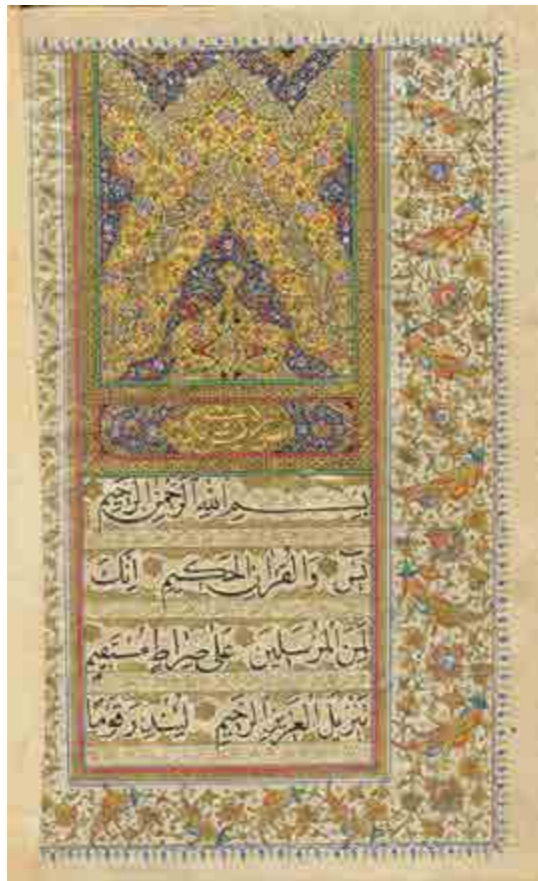 بِسْمِ اللهِ الرَّحْمٰنِ الرَّحِيْمِ
يٰسٓ وَالْقُرْاٰنِ الْحَكِيْمِ اِنَّكَ
لَمِنَ الْمُرْسَلِيْنَ عَلٰى صِرَاطٍ مُسْتَقِيْمٍ
تَنْزِيْلَ الْعَزِيْزِ الرَّحِيْمِ لِتُنْذِرَ قَوْمًا